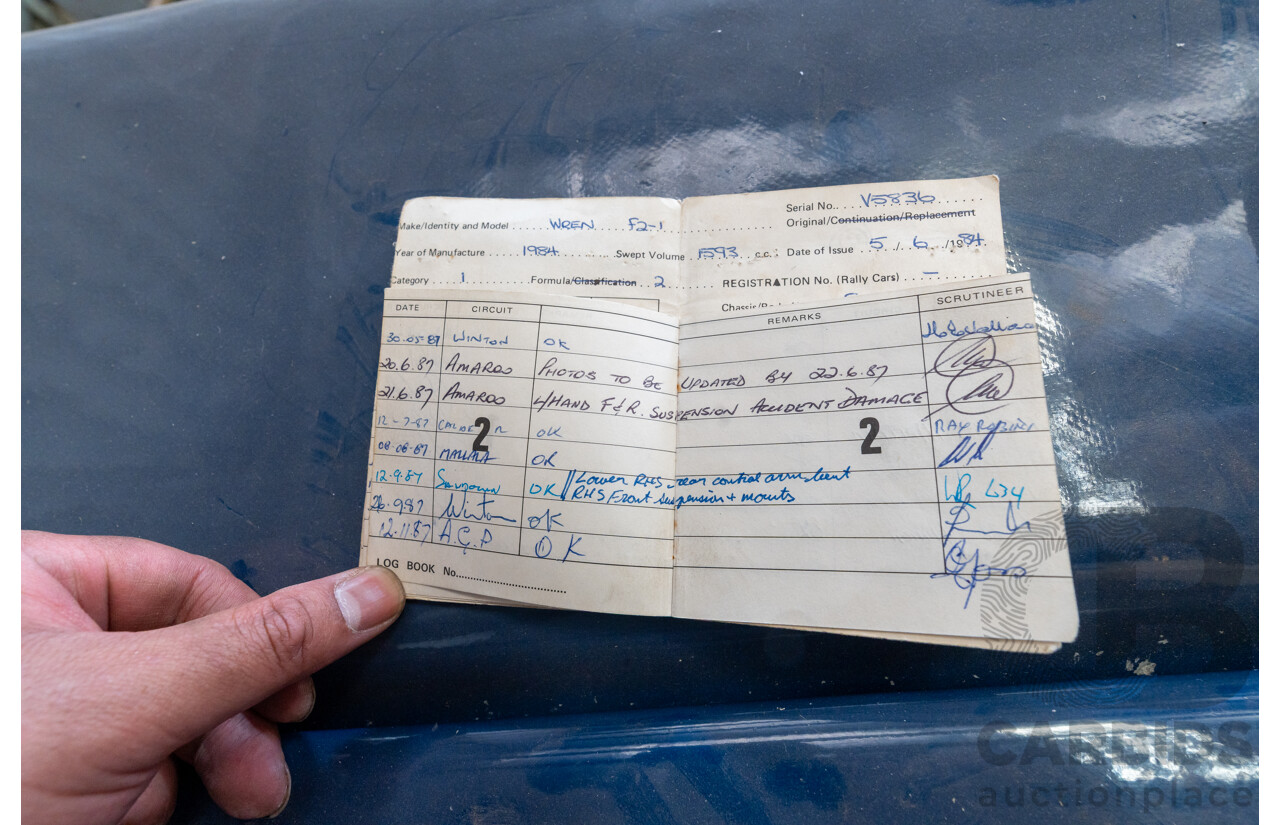 Serial No.. . V5836 . . . . . .
Make/Identity and Model . . . . . . WREN . . . . F2-1 . . . . . . . . . . . . . .
Original/Continuation/Replacement
Year of Manufacture . . . . . . 1984 . . . . . . . . . Swept Volume . 1593 . . c.c.: Date of Issue . 5 . . / . 6 . . . /1984.
Category . . . . . 1 . . . . . . . . . . . Formula/Classification . . 2 . . . . . . . REGISTRATION No. (Rally Cars) . . . – . . . .
DATE CIRCUIT REMARKS SCRUTINEER
30.05.87 WINTON OK
20.6.87 AMAROO PHOTOS TO BE UPDATED BY 22.6.87
21.6.87 AMAROO L/HAND F & R. SUSPENSION ACCIDENT DAMAGE
12-7-87 CALDER OK RAY
2 2
08.08.87 OK
12.9.87 Sandown OK // Lower RHS rear control arm bent
RHS Front suspension + mounts
26.9.87 Winton OK
12.11.87 A.G.P OK
LOG BOOK No..............................
CARBIDS
auctionplace